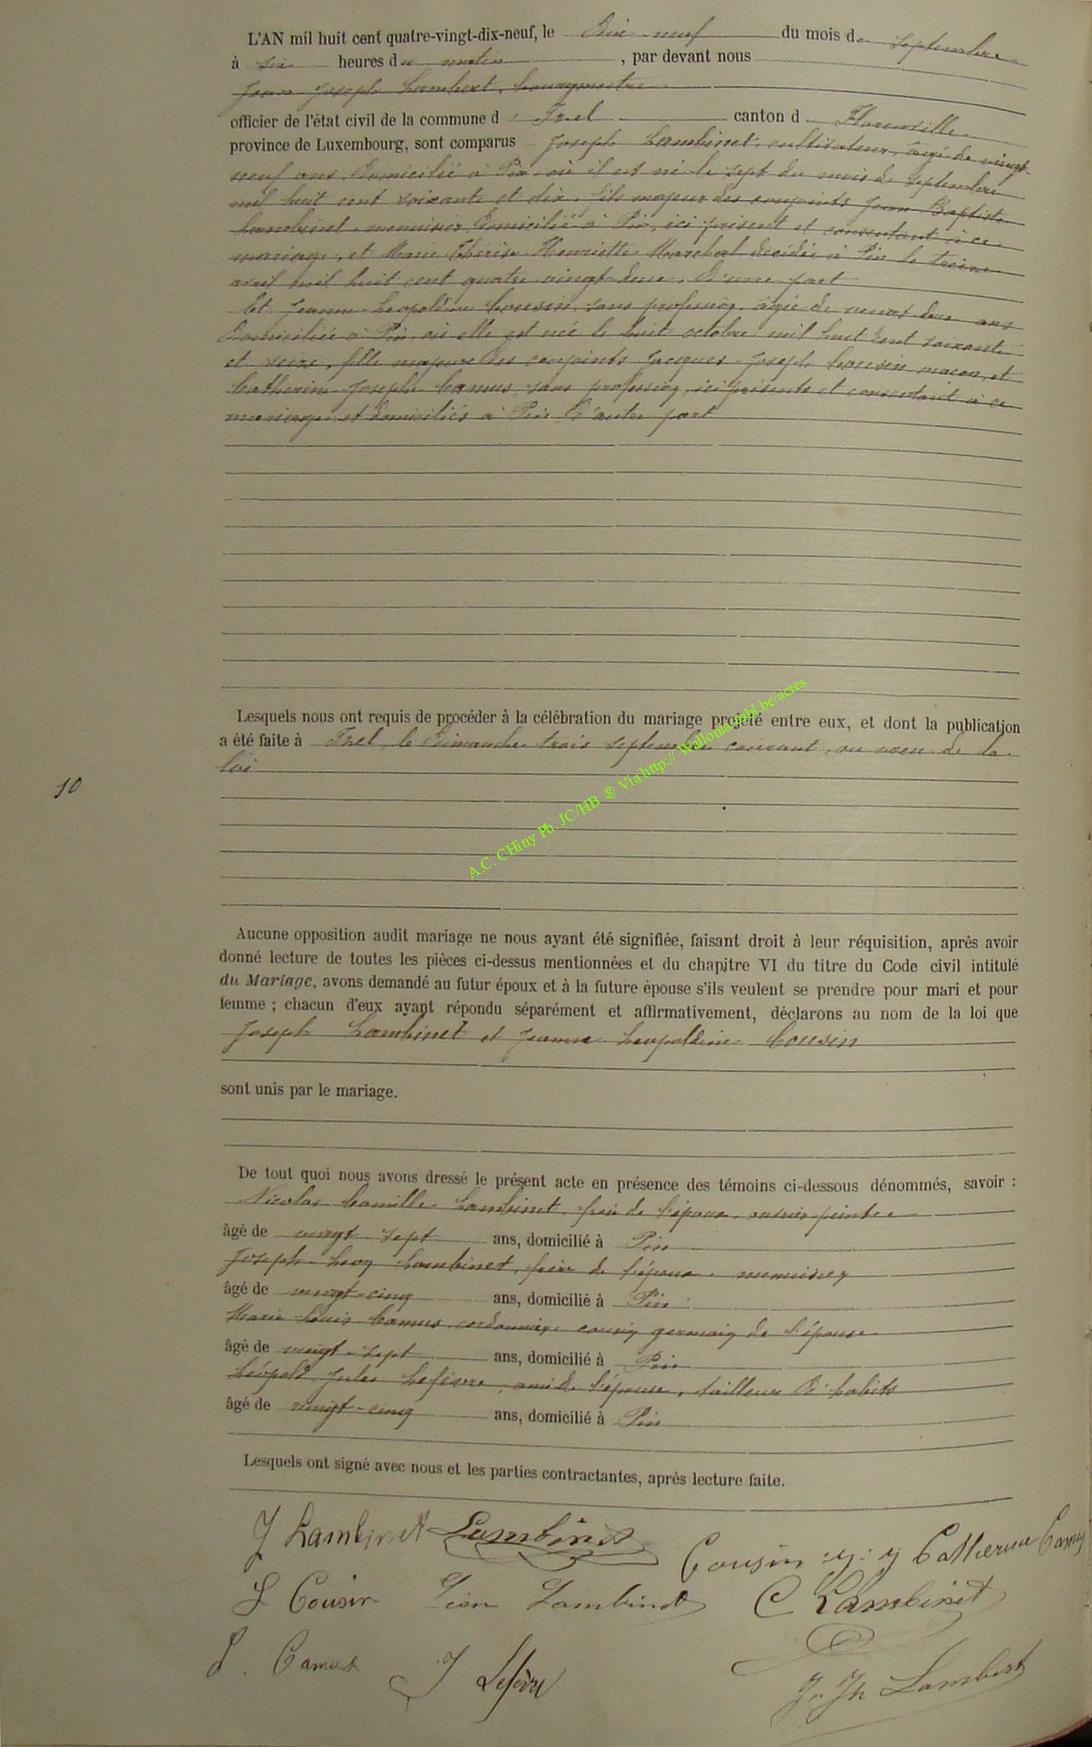 L'AN mil huit cent quatre-vingt-dix-neuf, le Dix neuf du mois de septembre
à six heures du matin, par devant nous
Jean Joseph Lambert, bourgmestre
officier de l'état civil de la commune d'Izel canton de Florenville
province de Luxembourg, sont comparus Joseph Lambinet, cultivateur, âgé de vingt
neuf ans, domicilié à Pin où il est né le sept du mois de septembre
mil huit cent soixante et dix, fils majeur des conjoints Jean Baptiste
Lambinet, menuisier domicilié à Pin, ici présent et consentant à ce
mariage, et Marie Thérèse Henriette Marchal décédée à Pin le treize
avril mil huit cent quatre vingt deux, D'une part
Et Jeanne Léopoldine Cousin, sans profession, âgée de vingt deux ans
domiciliée à Pin où elle est née le huit octobre mil huit cent soixante
et seize, fille majeure des conjoints Jacques Joseph Cousin maçon, et
Catherine Josephe Camus, sans profession, ici présents et consentant à ce
mariage et domiciliés à Pin D'autre part
Lesquels nous ont requis de procéder à la célébration du mariage projeté entre eux, et dont la publication
a été faite à Izel, le Dimanche trois septembre courant, au voeu de la
loi
10
A.C. CHiny Ph. JC/HB ® Via http:// Wallonia asbl.be/actes
Aucune opposition audit mariage ne nous ayant été signifiée, faisant droit à leur réquisition, après avoir
donné lecture de toutes les pièces ci-dessus mentionnées et du chapitre VI du titre du Code civil intitulé
du Mariage, avons demandé au futur époux et à la future épouse s'ils veulent se prendre pour mari et pour
femme ; chacun d'eux ayant répondu séparément et affirmativement, déclarons au nom de la loi que
Joseph Lambinet et Jeanne Léopoldine Cousin
sont unis par le mariage.
De tout quoi nous avons dressé le présent acte en présence des témoins ci-dessous dénommés, savoir :
Nicolas Camille Lambinet, frère de l'époux, ouvrier peintre
âgé de vingt sept ans, domicilié à Pin
Joseph Léon Lambinet, frère de l'époux, menuisier
âgé de vingt-cinq ans, domicilié à Pin
Marie Louis Camus cordonnier, cousin germain de l'épouse
âgé de vingt-sept ans, domicilié à Pin
Léopold Jules Lefèvre, ami de l'épouse, tailleur d'habits
âgé de vingt-cinq ans, domicilié à Pin
Lesquels ont signé avec nous et les parties contractantes, après lecture faite.
J Lambinet Lambinet Cousin J. J Catherine Camus
L Cousin Léon Lambinet C Lambinet
L. Camus J Lefèvre Jn Jh Lambert